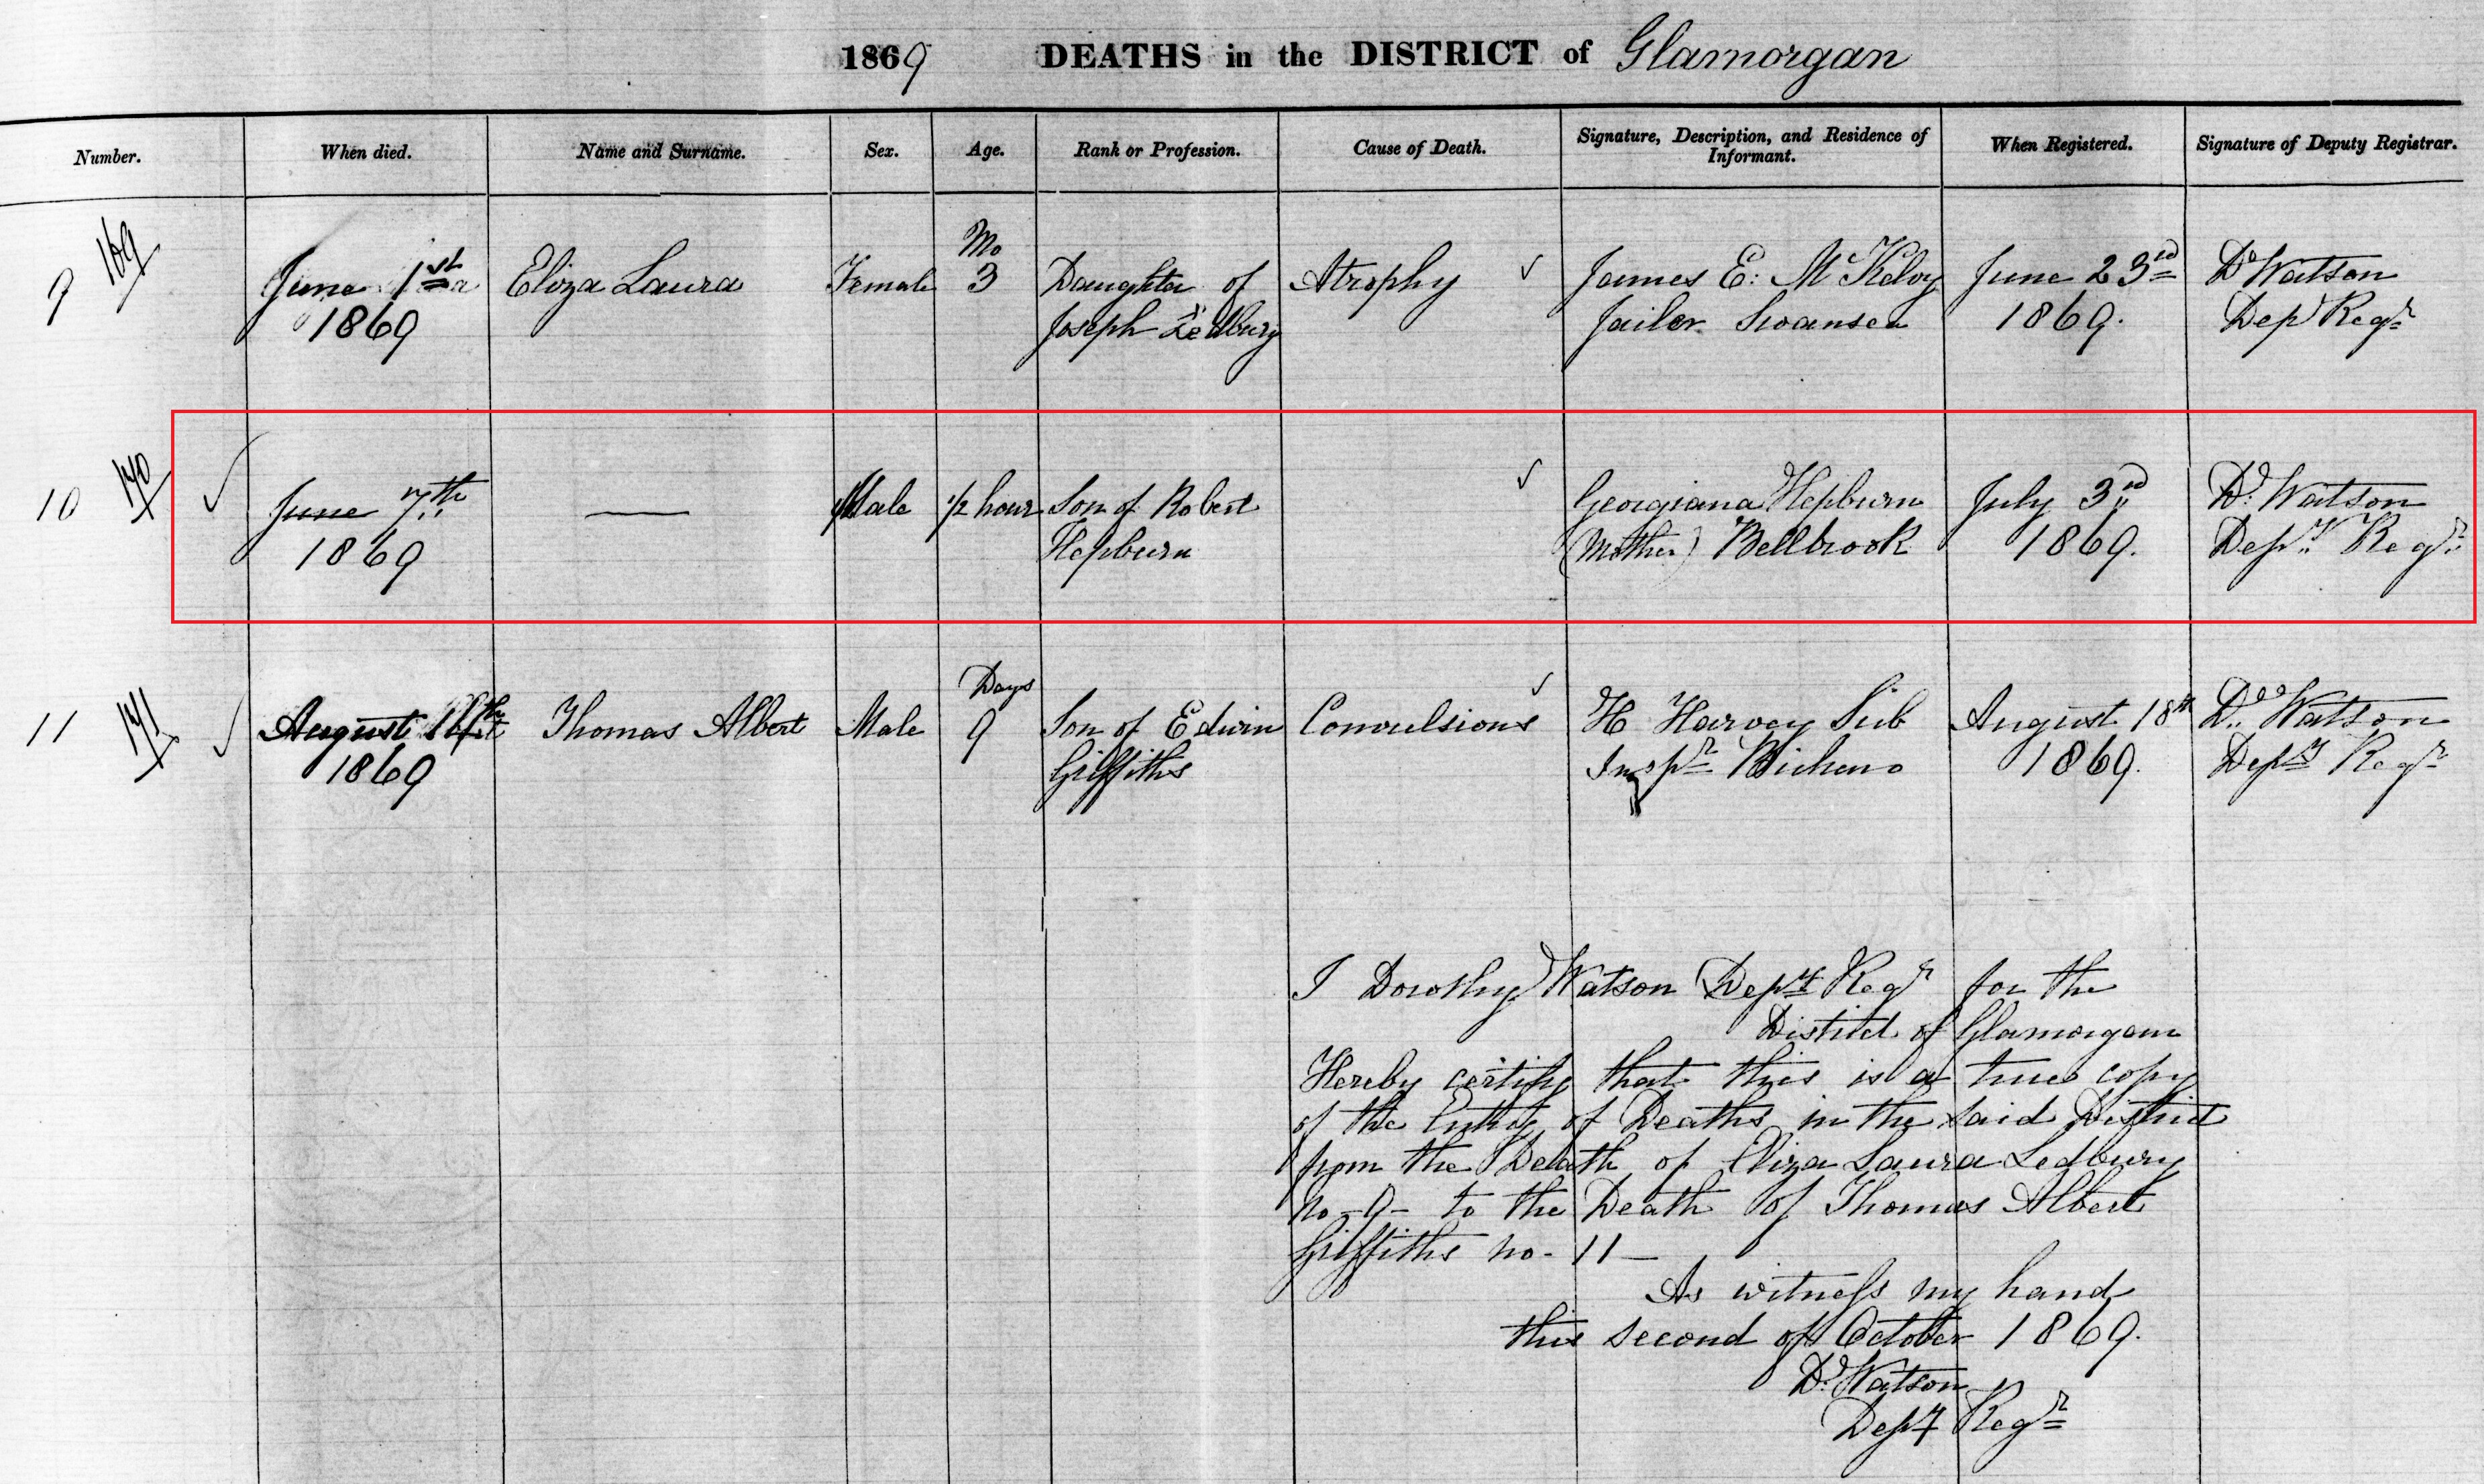 1869 DEATHS in the DISTRICT of Glamorgan
Number. When died. Name and Surname. Sex. Age. Rank or Profession. Cause of Death. Signature, Description, and Residence of Informant. When Registered. Signature of Deputy Registrar.
169
Mo
9 June 1st Eliza Laura Female 3 Daughter of Atrophy James E: McKeloy June 23rd D Watson
1869 Joseph Ledbury Jailer Swansea 1869. Dep Regr
170
10 June 7th — Male 1/2 hour Son of Robert Georgiana Hepburn July 3rd D. Watson
1869 Hepburn (Mother) Bellbrook 1869. Depy Regr
171
Days
11 August Thomas Albert Male 9 Son of Edwin Convulsions H Harvey Sub August 18th D. Watson
1869 Griffiths Inspr Bicheno 1869. Depy Regr
I Dorothy Watson Depy Regr for the
District of Glamorgan
Hereby certify that this is a true copy
of the Entry of Deaths in the said District
from the Death of Eliza Laura Ledbury
No - 9 - to the Death of Thomas Albert
Griffiths no - 11 —
As witness my hand
this second of October 1869.
D. Watson
Depy Regr